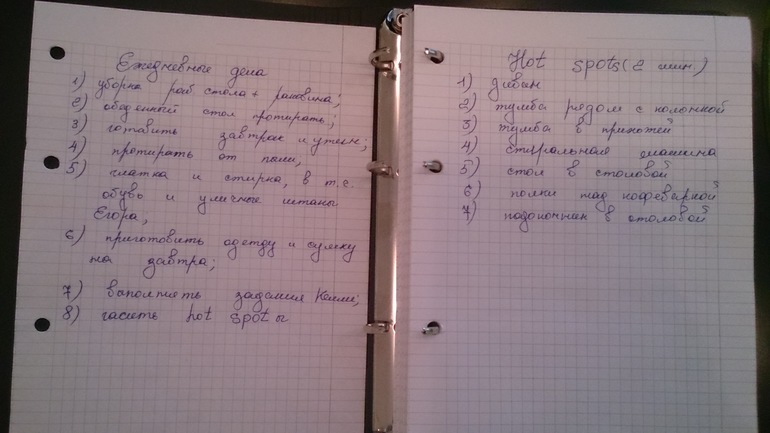 Ежедневные дела
1) уборка раб стола + раковина;
2) обеденный стол протирать;
3) готовить завтрак и ужин;
4) протирать от пыли,
5) глажка и стирка, в т.ч.
обувь и уличные штаны
Егора,
6) приготовить одежду и сумку
на завтра;
7) выполнять задания Келли;
8) гасить hot spotы
Hot spots (2 мин.)
1) диван
2) тумба рядом с колонкой
3) тумба в прихожей
4) стиральная машина
5) стол в столовой
6) полки над кофеваркой
7) подоконник в столовой